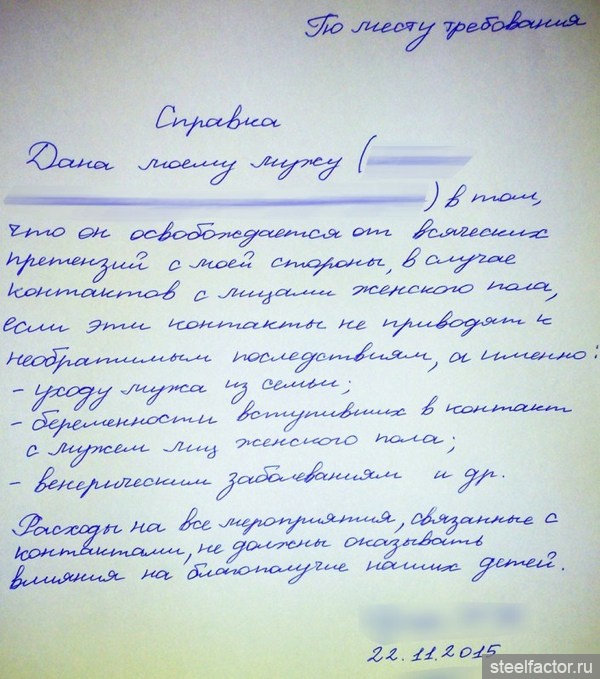 По месту требования
Справка
Дана моему мужу (
) в том,
что он освобождается от всяческих
претензий с моей стороны, в случае
контактов с лицами женского пола,
если эти контакты не приводят к
необратимым последствиям, а именно:
- уходу мужа из семьи;
- беременности вступивших в контакт
с мужем лиц женского пола;
- венерическим заболеваниям и др.
Расходы на все мероприятия, связанные с
контактами, не должны оказывать
влияния на благополучие наших детей.
22.11.2015
steelfactor.ru